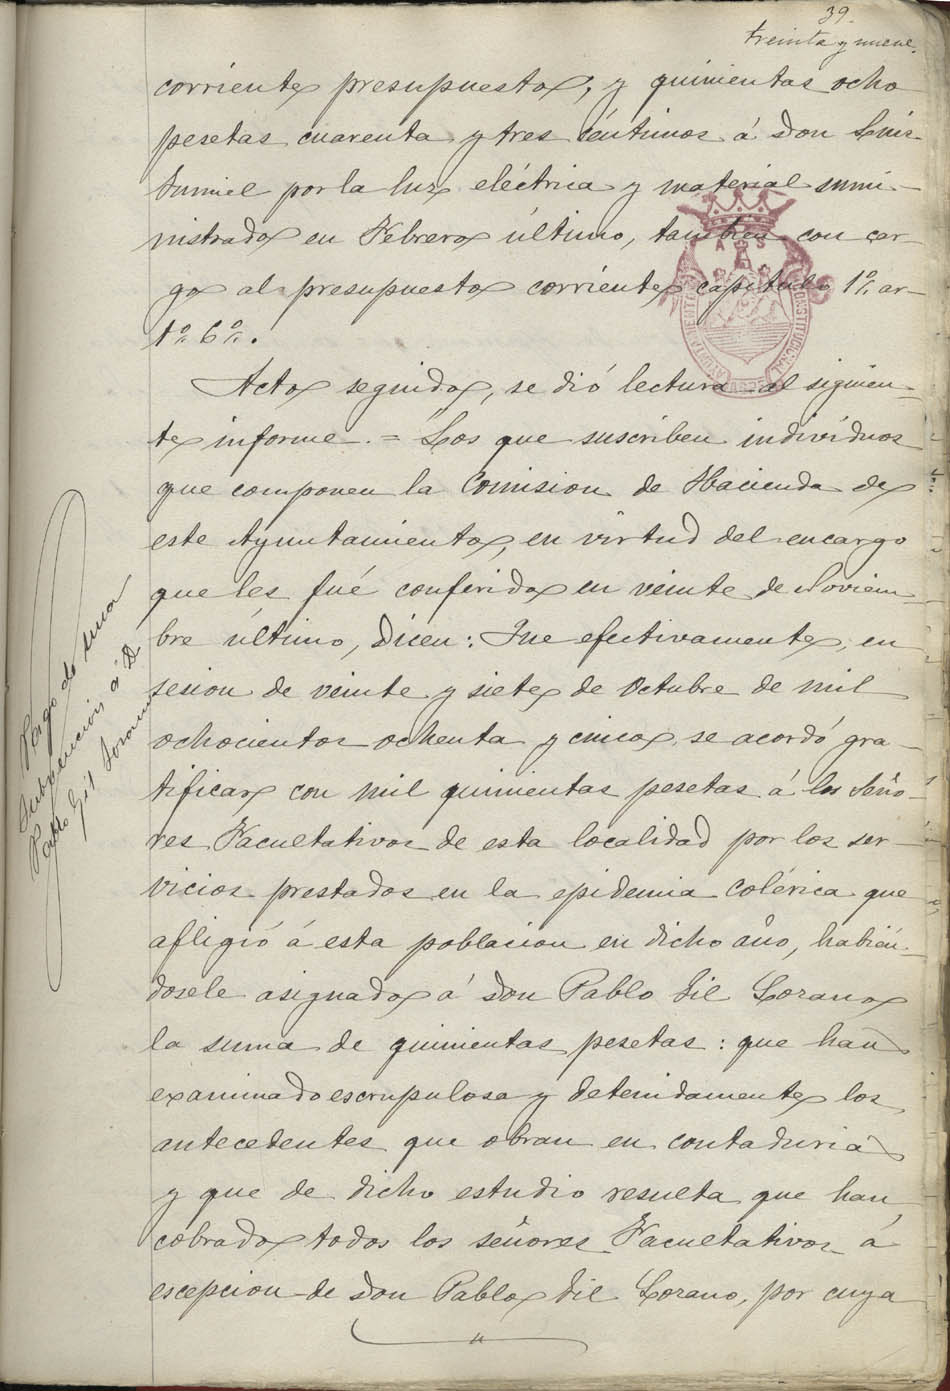 39.
treinta y nueve.
corriente presupuesto, y quinientas ocho
pesetas cuarenta y tres céntimos á don Luis
por la luz eléctrica y material sumi-
nistrado en Febrero último, tambien con car-
go al presupuesto corriente capítulo 1º, ar-
tº 6º.
Acto seguido, se dió lectura al siguien-
te informe. = Los que suscriben individuos
que componen la Comision de Hacienda de
este Ayuntamiento, en virtud del encargo
que les fué conferido en veinte de Noviem-
bre último, dicen: Que efectivamente, en
sesion de veinte y siete de Octubre de mil
ochocientos ochenta y cinco, se acordó gra-
tificar con mil quinientas pesetas á los Seño-
res Facultativos de esta localidad por los ser-
vicios prestados en la epidemia colérica que
afligió á esta poblacion en dicho año, habién-
dosele asignado á don Pablo Gil Lozano
la suma de quinientas pesetas: que han
examinado escrupulosa y detenidamente los
antecedentes que obran en contaduria
y que de dicho estudio resulta que han
cobrado todos los señores Facultativos á
escepcion de don Pablo Gil Lozano, por cuya
Pago de una
subvencion á D.
Pablo Gil Lozano
AYUNTAMIENTO CONSTITUCIONAL